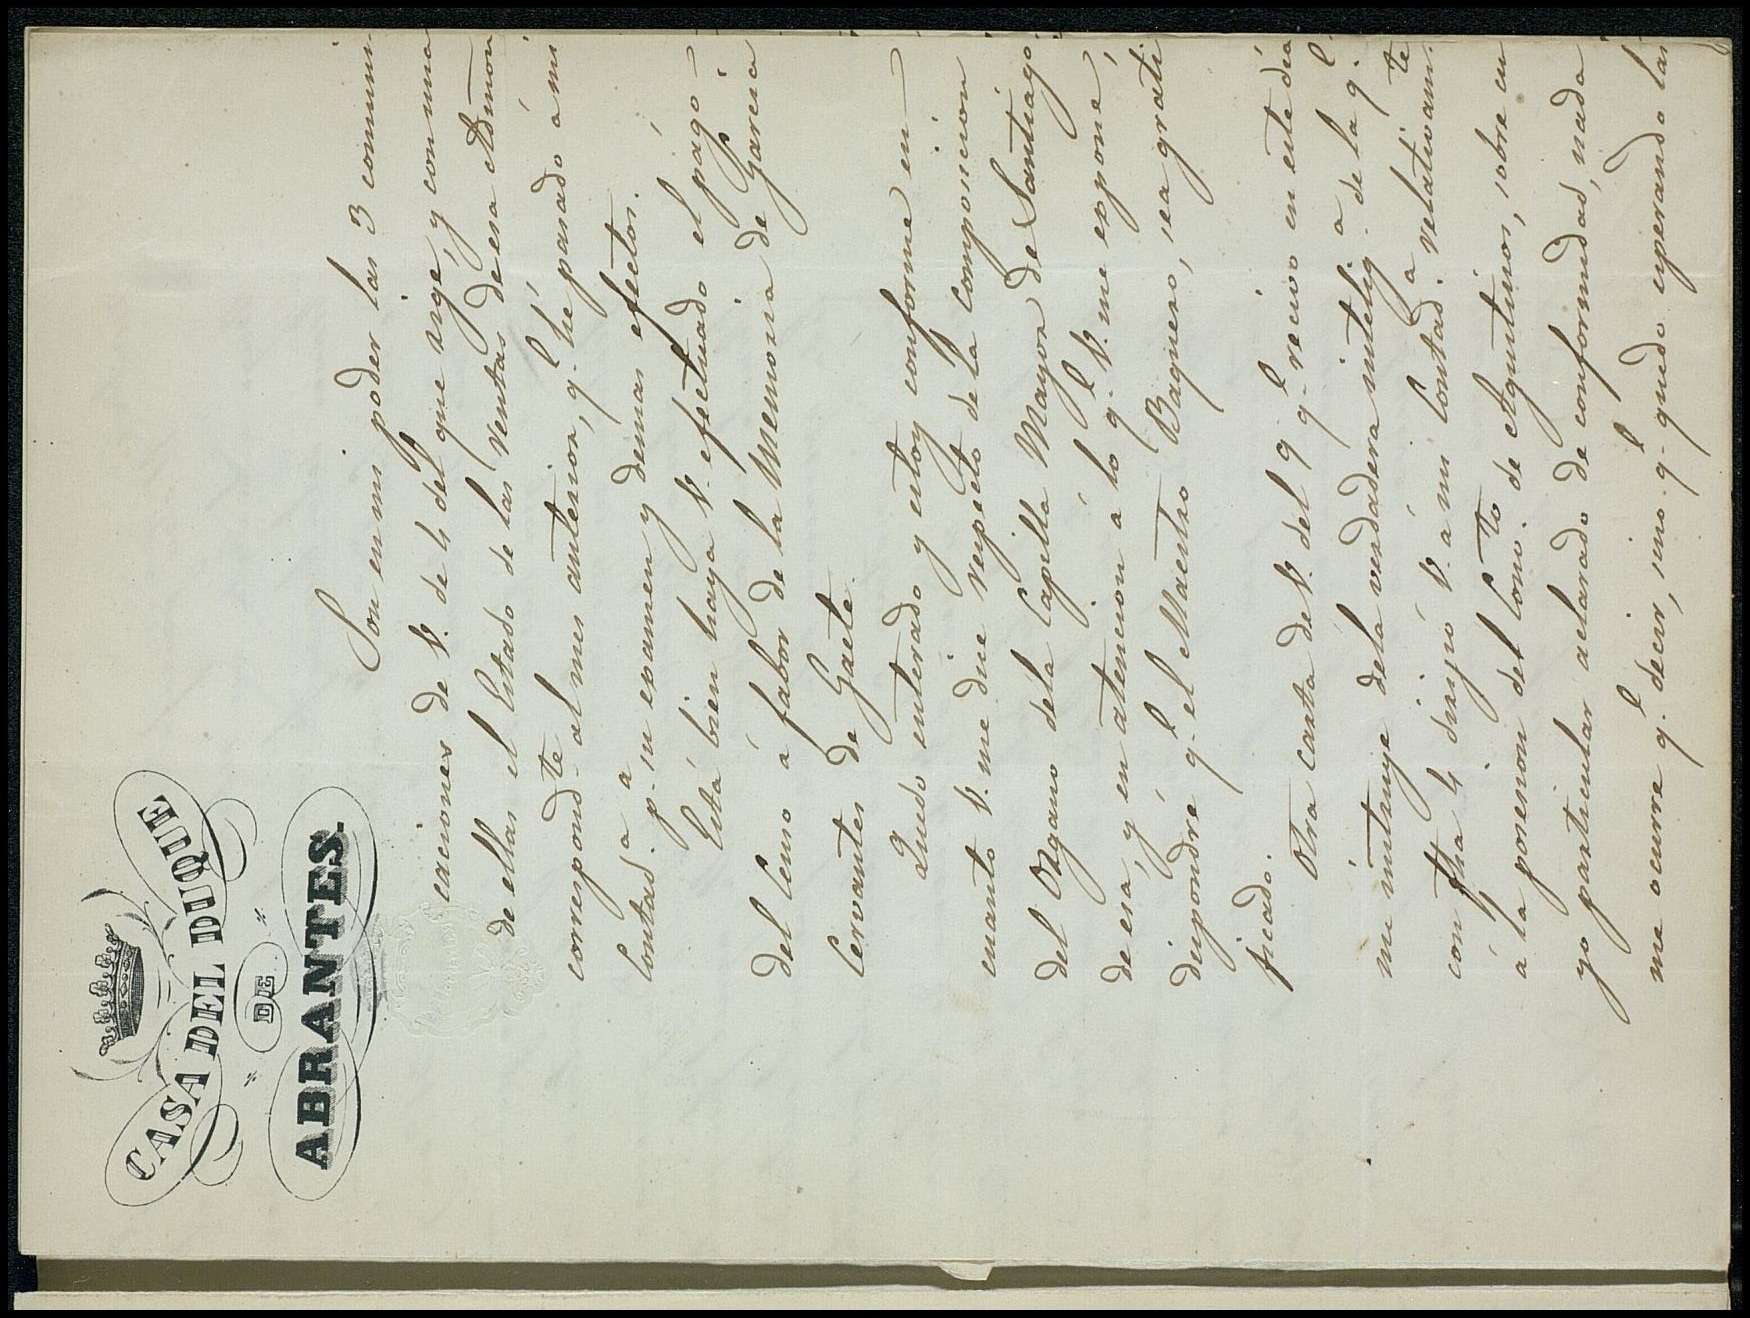 CASA DEL DUQUE
DE
ABRANTES.
Son en mi poder las 3 comuni
caciones de V. de 4 del que rige, y con una
de ellas el Estado de las Rentas de esa Admon
correspond.te al mes anterior, q.e hé pasado á mi
Contad.a p.a su examen y demas efectos.
Está bien haya V. efectuado el pago
del Censo á fabor de la Memoria de Garcia
Cervantes de Gaete.
Quedo enterado y estoy conforme en
cuanto V. me dice respecto de la composicion
del Organo dela Capilla Mayor de Santiago
de esa, y en atencion á lo q.e V. me espone,
dispondré q.e el Maestro Baquero, sea grati
ficado.
Otra carta de V. del 9 q.e recivo en este dia
me instruye dela verdadera intelig.a de la q.e
con fha 4 dirijió V. á mi Contad.a relativam.te
á la posesion del Conv.to de Agustinos, sobre cu
yo particular aclarado de conformidad, nada
me ocurre q.e decir, sino q.e quedo esperando las